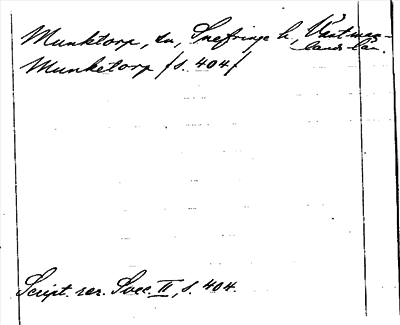 Munktorp, sn, Snefringe h, Västman-
lands län.
Munketorp (s. 404)
Script. rer. Svec. II, s. 404.